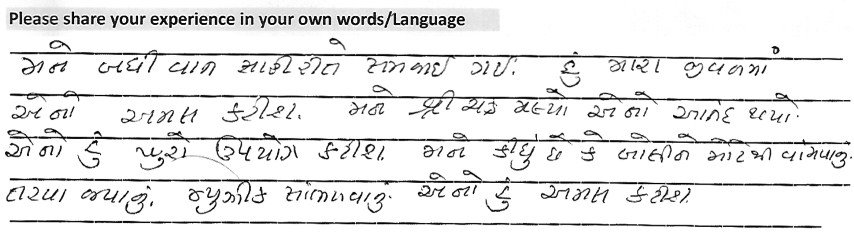 Please share your experience in your own words/Language
મને બધી વાત સારી રીતે સમજાઇ ગઇ. હું મારા જીવનમાં
એનો અમલ કરીશ. મને શ્રી ચક્ર મલ્યો એનો આનંદ થયો.
એનો હું પુરો ઉપયોગ કરીશ. મને કીધું છે કે બોલીને મોટેથી વાંચવાનું.
તરવા જવાનું. મ્યુઝીક સાંભળવાનું. એનો હું અમલ કરીશ.